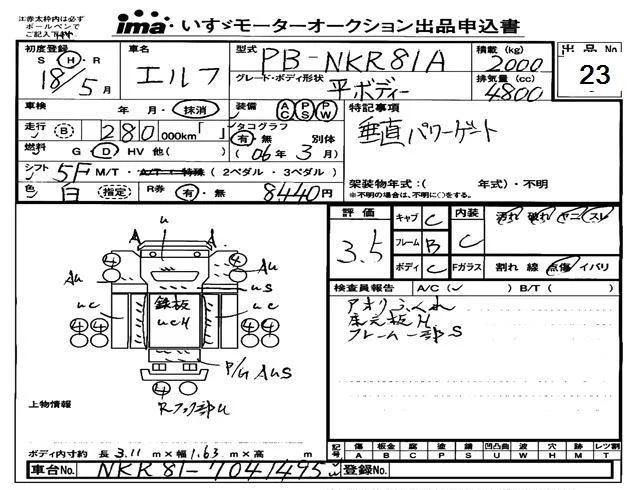 ※赤太枠内は必ず
ボールペンで
ご記入下さい
ima いすゞモーターオークション出品申込書
初度登録 S H・R 18/5月
車名 エルフ
型式 PB-NKR81A
グレード・ボディ形状 平ボディー
積載 (kg) 2000
排気量 (cc) 4800
出品 No 23
車検 年・月・抹消
装備 AC PS PW
走行 B 280 000km「 」
タコグラフ 有・無 別体 (06年3月)
燃料 G D HV 他( )
シフト 5F M/T・A/T・特殊 (2ペダル・3ペダル)
色 白 指定 R券 有・無 8440円
特記事項
垂直パワーゲート
架装物年式:( 年式)・不明
※不明の場合は、不明に○をする。
評価 3.5
キャブ C
フレーム B
ボディ C
内装 C
汚れ 破れ ヤニ スレ
Fガラス 割れ 線 点傷 イバリ
検査員報告 A/C(✓) B/T( )
アオリふくれ
床元板H
フレーム一部S
u
Au Au
u s
u c 鉄板 u c
u c H
④ ④ ④ ④
P/G AUS
④
Rフック部u
上物情報
ボディ内寸約 長 3.11 m×幅 1.63 m×高 m
記号 傷 板金 腐 塗 錆 凹凸曲 波 穴 跡 レツ割
A B C P S U W H M T
車台No. NKR81-7041495
登録No.